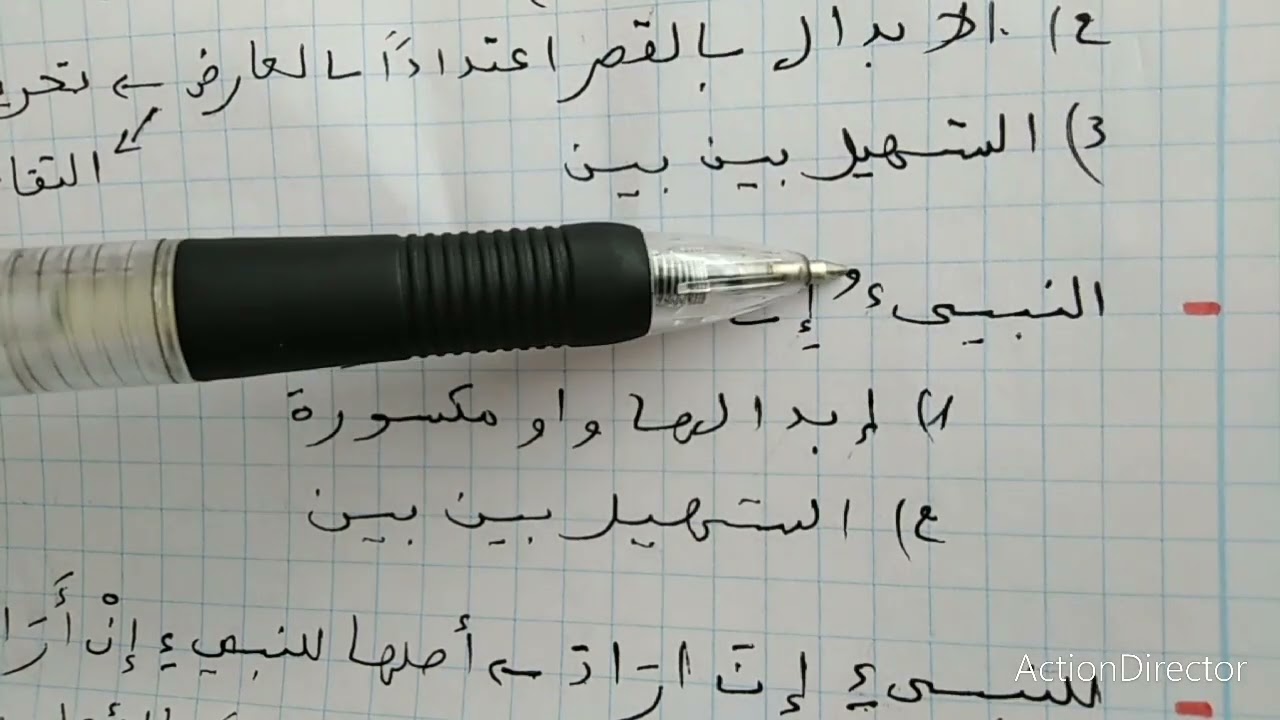 2) الابدال بالقصر اعتدادًا بالعارض ←
3) التسهيل بين بين
النبيءُ إن
1) إبدالها واو مكسورة
2) التسهيل بين بين
للنبيءِ إنَ ارَادَ ← أصلها للنبيءِ إنْ أَرَا
ActionDirector